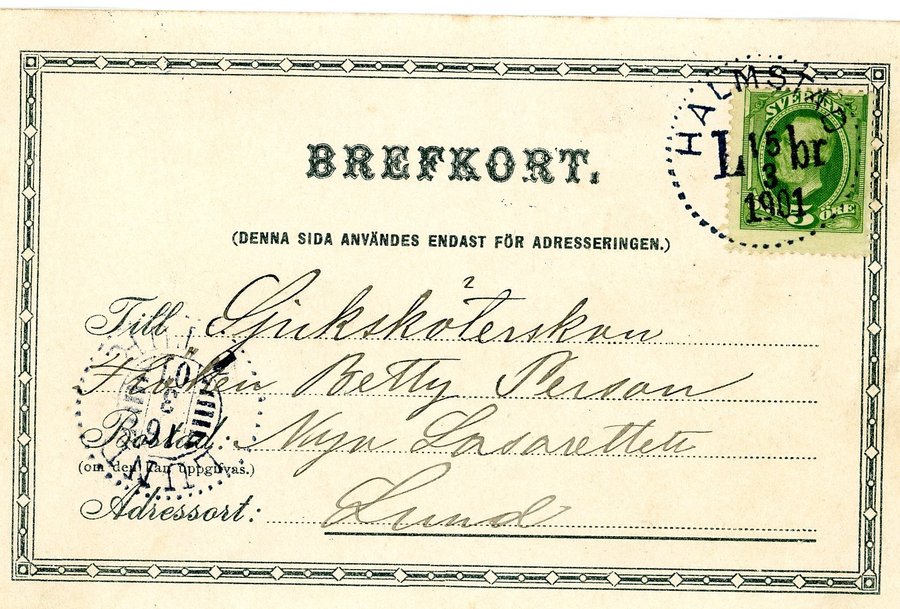 HALMSTAD
SVERIGE
L br
15
3
1901
5 ÖRE
BREFKORT.
(DENNA SIDA ANVÄNDES ENDAST FÖR ADRESSERINGEN.)
Till Sjuksköterskan
Fröken Betty Person
Bostad: Nya Lasarettet
(om den kan uppgifvas.)
Adressort: Lund
LUND
16
3
01